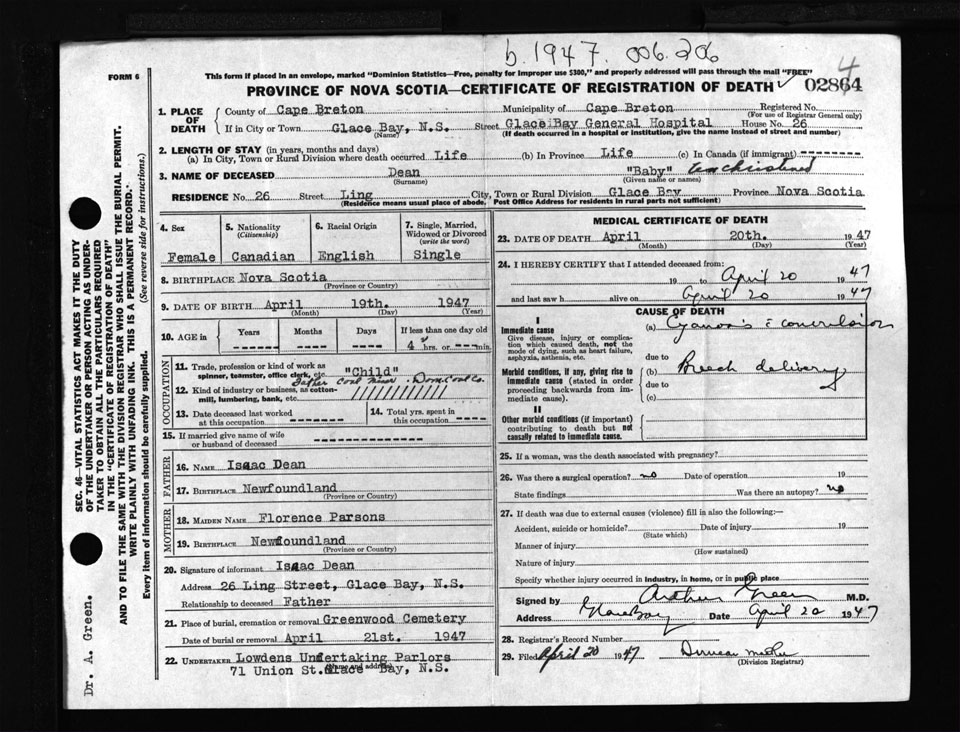 b. 1947. 006.206
4
FORM 6
This form if placed in an envelope, marked "Dominion Statistics—Free, penalty for improper use $300," and properly addressed will pass through the mail "FREE"
PROVINCE OF NOVA SCOTIA—CERTIFICATE OF REGISTRATION OF DEATH 02864
1. PLACE OF DEATH
County of Cape Breton Municipality of Cape Breton Registered No.
(For use of Registrar General only)
If in City or Town Glace Bay, N.S. Street Glace Bay General Hospital House No. 26
(Name) (If death occurred in a hospital or institution, give the name instead of street and number)
2. LENGTH OF STAY (in years, months and days)
(a) In City, Town or Rural Division where death occurred Life (b) In Province Life (c) In Canada (if immigrant) --------
3. NAME OF DECEASED Dean "Baby" unchristened
(Surname) (Given name or names)
RESIDENCE No. 26 Street Ling City, Town or Rural Division Glace Bay Province Nova Scotia
(Residence means usual place of abode. Post Office Address for residents in rural parts not sufficient)
4. Sex
Female
5. Nationality
(Citizenship)
Canadian
6. Racial Origin
English
7. Single, Married, Widowed or Divorced
(write the word)
Single
8. BIRTHPLACE Nova Scotia
(Province or Country)
9. DATE OF BIRTH April 19th. 1947
(Month) (Day) (Year)
10. AGE in
Years Months Days If less than one day old
------ ------ ----- 4 hrs. or --- min.
OCCUPATION
11. Trade, profession or kind of work as spinner, teamster, office clerk, etc. "Child"
Father Coal Miner. Dom. Coal Co.
12. Kind of industry or business, as cotton-mill, lumbering, bank, etc. ////////////
13. Date deceased last worked at this occupation ---------
14. Total yrs. spent in this occupation ------
15. If married give name of wife or husband of deceased ------------
FATHER
16. NAME Isaac Dean
17. BIRTHPLACE Newfoundland
(Province or Country)
MOTHER
18. MAIDEN NAME Florence Parsons
19. BIRTHPLACE Newfoundland
(Province or Country)
20. Signature of informant Isaac Dean
Address 26 Ling Street, Glace Bay, N.S.
Relationship to deceased Father
21. Place of burial, cremation or removal Greenwood Cemetery
Date of burial or removal April 21st. 1947
22. UNDERTAKER Lowdens Undertaking Parlors
(Name and address)
71 Union St. Glace Bay, N.S.
MEDICAL CERTIFICATE OF DEATH
23. DATE OF DEATH April 20th. 1947
(Month) (Day) (Year)
24. I HEREBY CERTIFY that I attended deceased from:
19 to April 20 1947
and last saw h alive on April 20 1947
CAUSE OF DEATH
I
Immediate cause
Give disease, injury or complication which caused death, not the mode of dying, such as heart failure, asphyxia, asthenia, etc.
(a) Cyanosis c convulsion
due to
Morbid conditions, if any, giving rise to immediate cause (stated in order proceeding backwards from immediate cause).
(b) Breech delivery
due to
(c)
II
Other morbid conditions (if important) contributing to death but not causally related to immediate cause.
25. If a woman, was the death associated with pregnancy?
26. Was there a surgical operation? no Date of operation 19
State findings Was there an autopsy? no
27. If death was due to external causes (violence) fill in also the following:—
Accident, suicide or homicide? Date of injury 19
(State which)
Manner of injury
(How sustained)
Nature of injury
Specify whether injury occurred in industry, in home, or in public place
Signed by Arthur Green M.D.
Address Glace Bay Date April 20 1947
28. Registrar's Record Number
29. Filed April 20 1947
(Division Registrar)
SEC. 46—VITAL STATISTICS ACT MAKES IT THE DUTY
OF THE UNDERTAKER OR PERSON ACTING AS UNDERTAKER TO OBTAIN ALL THE PARTICULARS REQUIRED
IN THE "CERTIFICATE OF REGISTRATION OF DEATH"
AND TO FILE THE SAME WITH THE DIVISION REGISTRAR WHO SHALL ISSUE THE BURIAL PERMIT.
WRITE PLAINLY WITH UNFADING INK. THIS IS A PERMANENT RECORD.
Every item of information should be carefully supplied. (See reverse side for instructions.)
Dr. A. Green.